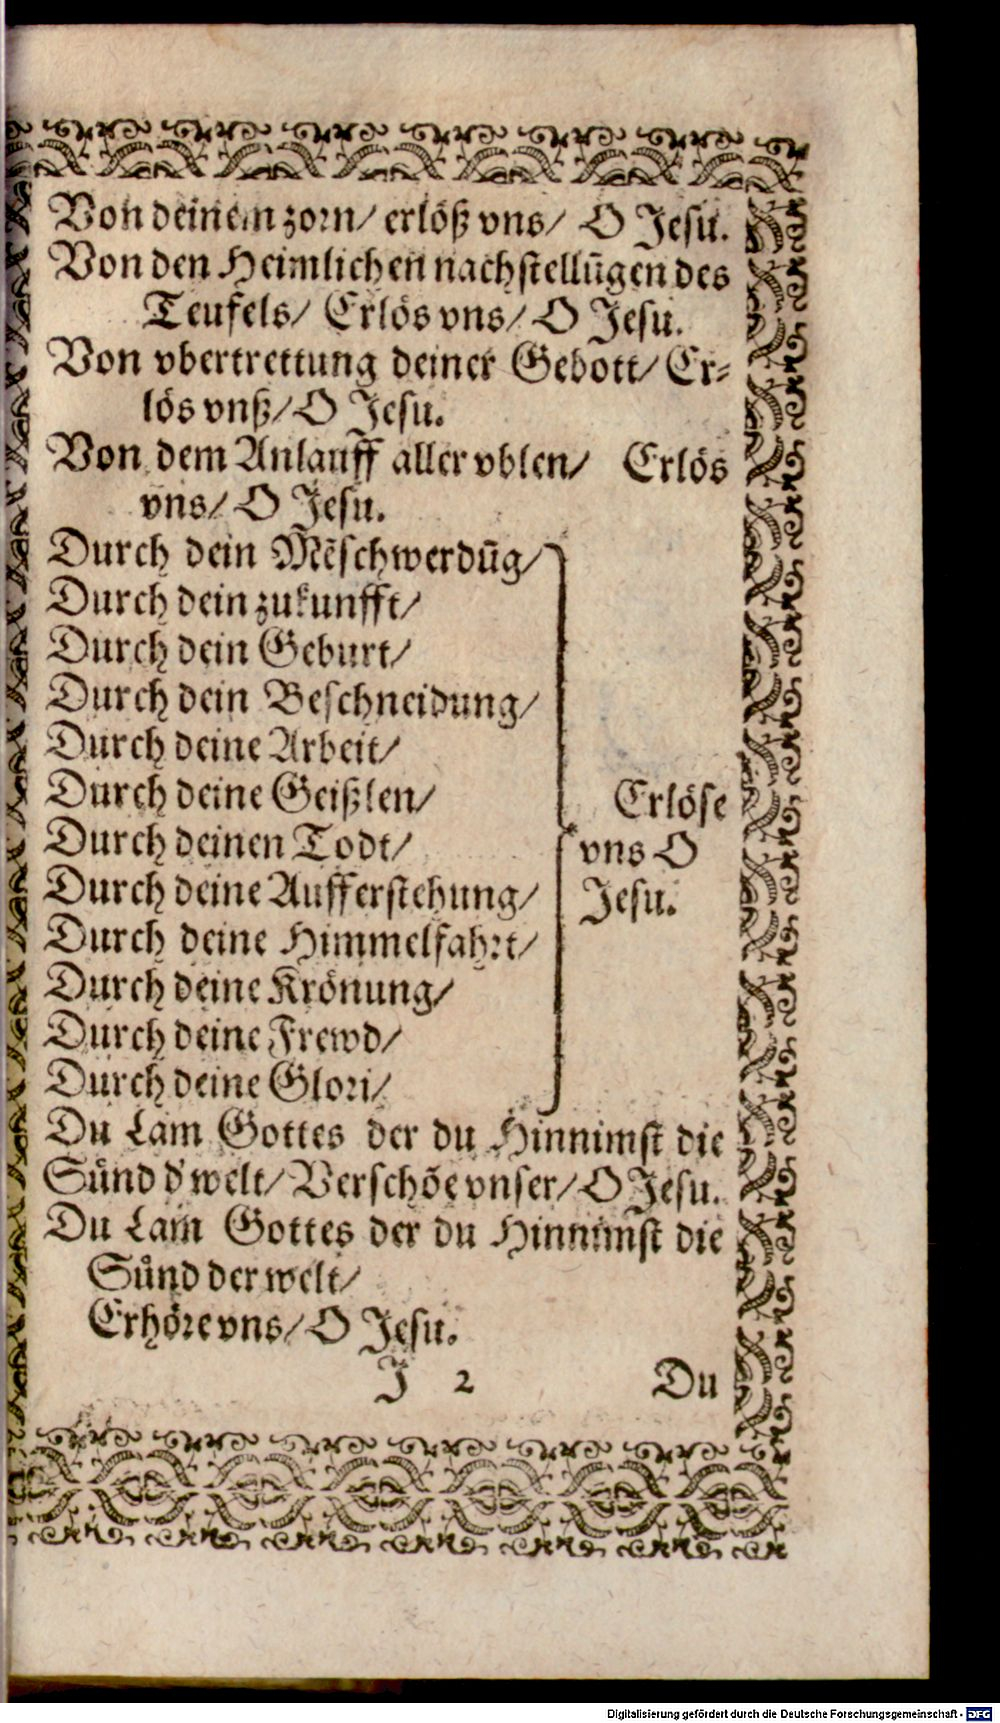 Von deinem zorn/ erlöß vns/ O Jesu.
Von den Heimlichen nachstellūgen des
Teufels/ Erlös vns/ O Jesu.
Von vbertrettung deiner Gebott/ Er-
lös vnß/ O Jesu.
Von dem Anlauff aller vblen/ Erlös
vns/ O Jesu.
Durch dein Mēschwerdūg/
Durch dein zukunfft/
Durch dein Geburt/
Durch dein Beschneidung/
Durch deine Arbeit/
Durch deine Geißlen/
Durch deinen Todt/
Durch deine Aufferstehung/
Durch deine Himmelfahrt/
Durch deine Krönung/
Durch deine Frewd/
Durch deine Glori/
Erlöse
vns O
Jesu.
Du Lam Gottes der du Hinnimst die
Sünd d' welt/ Verschōe vnser/ O Jesu.
Du Lam Gottes der du Hinnimst die
Sünd der welt/
Erhöre vns/ O Jesu.
J 2 Du
Digitalisierung gefördert durch die Deutsche Forschungsgemeinschaft - DFG